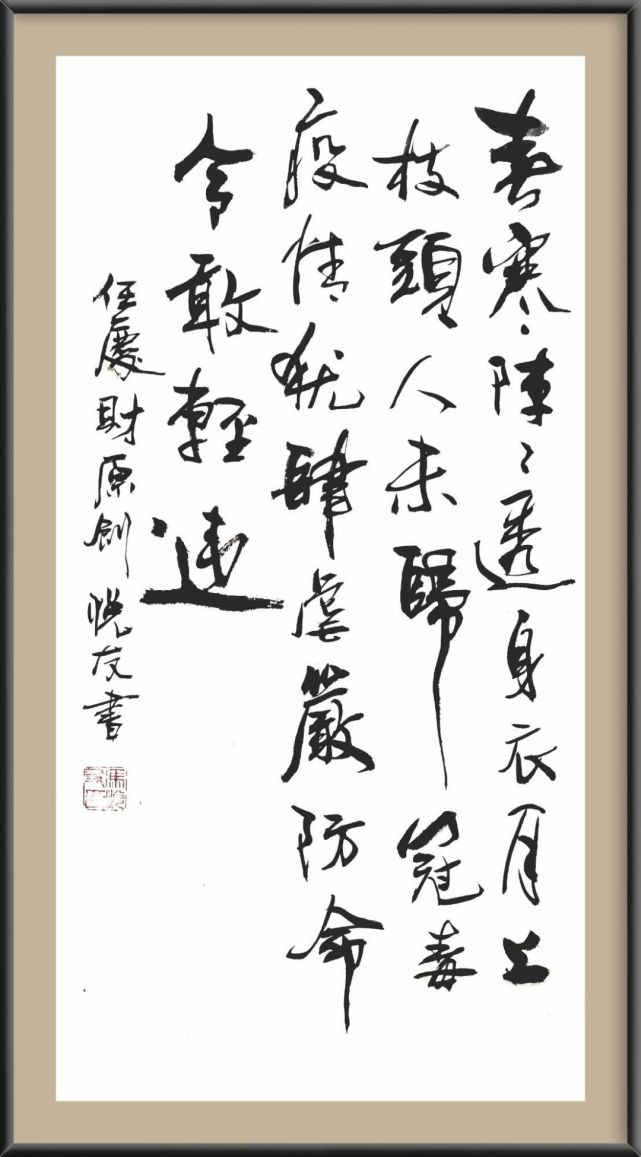 春寒陣〻透身衣月上
枝頭人未歸冠毒
疫情猶肆虐嚴防命
令敢輕違
任慶財原創 悅友書